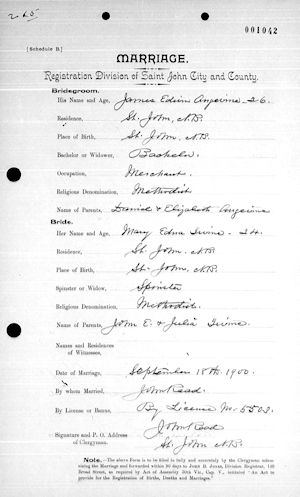 265
001042
[Schedule B.]
MARRIAGE.
Registration Division of Saint John City and County.
Bridegroom.
His Name and Age, James Edwin Angevine 26.
Residence, St. John, N.B.
Place of Birth, St. John, N.B.
Bachelor or Widower, Bachelor.
Occupation, Merchant.
Religious Denomination, Methodist
Name of Parents, Daniel & Elizabeth Angevine
Bride.
Her Name and Age, Mary Edna Irvine 24.
Residence, St. John. N.B.
Place of Birth, St. John, N.B.
Spinster or Widow, Spinster
Religious Denomination, Methodist.
Name of Parents, John E. & Julia Irvine
Names and Residences
of Witnesses,
Date of Marriage, September 18th. 1900.
By whom Married, John Read.
By License or Banns, By License No. 5503.
John Read
Signature and P. O. Address
of Clergyman. St. John N.B.
NOTE.—The above Form is to be filled in fully and accurately by the Clergyman solemnizing the Marriage and forwarded within 30 days to JOHN B. JONES, Division Registrar, 139 Broad Street, as required by Act of Assembly 50th Vic., Cap. V., intituled "An Act to provide for the Registration of Births, Deaths and Marriages."